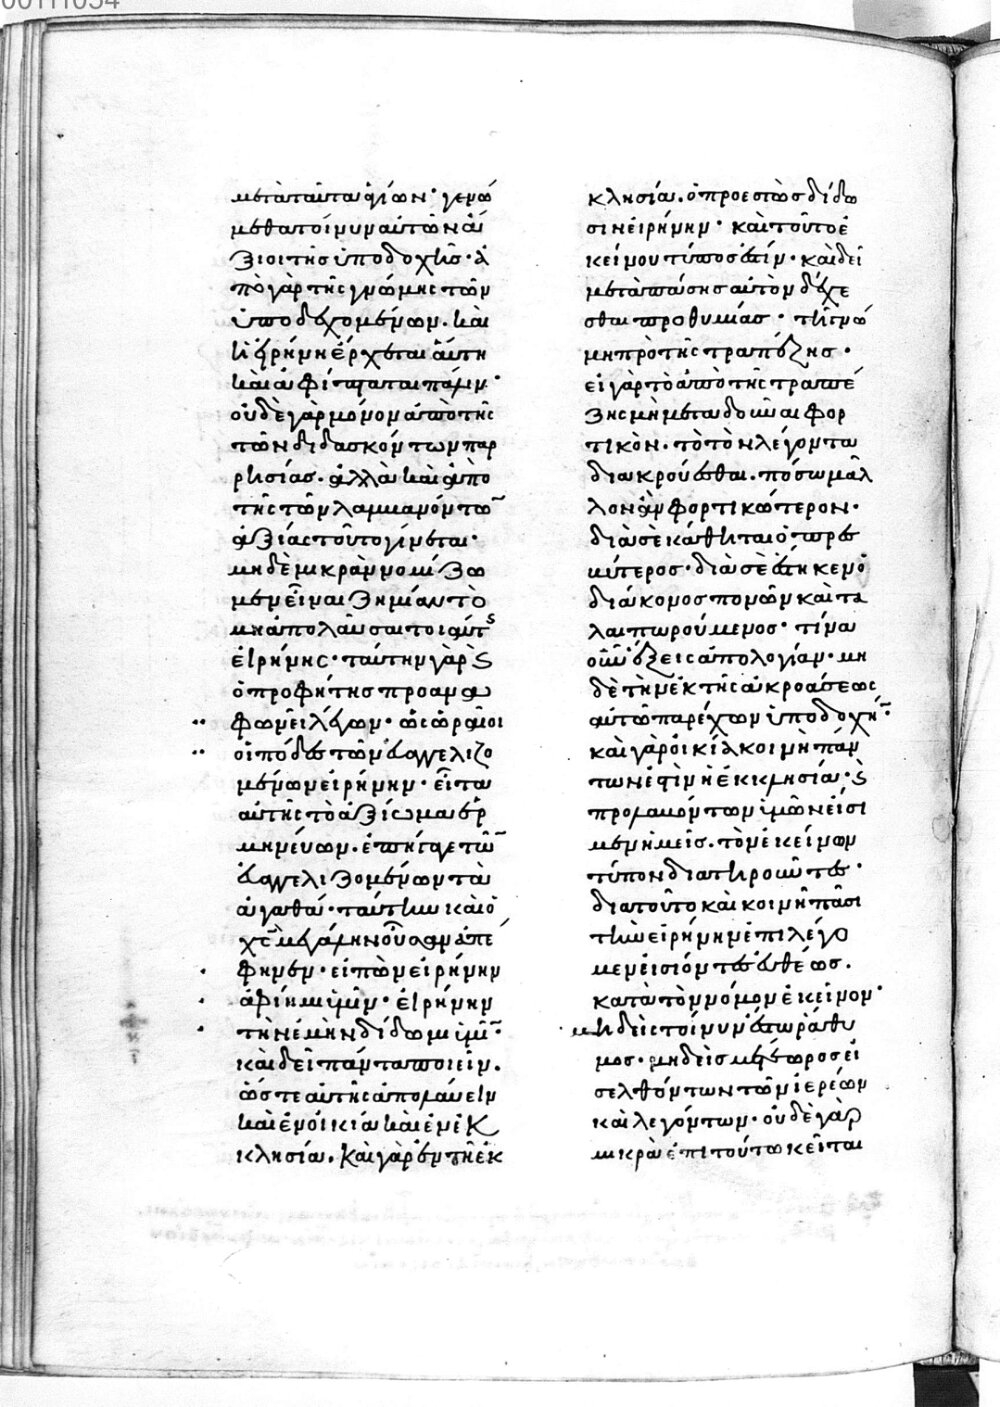 μεταταῦτα ἁγίων· γενώ
μεθα τοίνυν αὐτῶν ἄ
ξιοι τῆς ὑποδοχῆς· ἀ
πὸ γὰρ τῆς γνώμης τῶν
ὑποδεχομένων. καὶ
ἡ εἰρήνη ἔρχεται αὕτη
καὶ ἀφίπταται πάλιν·
οὐδὲ γὰρ μόνον ἀπὸ τῆς
τῶν διδασκόντων παρ
ρησίας. ἀλλὰ καὶ ἀπὸ
τῆς τῶν λαμβανόντω
ἀξίας τοῦτο γίνεται·
μηδὲ μικρὰν νομίζω
μεν εἶναι ζημίαν τὸ
μὴ ἀπολαῦσαι τοιαύτ
εἰρήνης· ταύτην γὰρ ϗ
ὁ προφήτης προανα
φωνεῖ λέγων· ὡς ὡραῖοι
οἱ πόδες τῶν εὐαγγελιζο
μένων εἰρήνην· εἶτα
αὐτῆς τὸ ἀξίωμα ἑρ
μηνεύων. ἐπήγαγε τῶ
εὐαγγελιζομένων τὰ
ἀγαθά· ταύτην καὶ ὁ
χς μεγάλην οὖσαν ἀπέ
φηνεν· εἰπὼν εἰρήνην
ἀφίημι ὑμῖν· εἰρήνην
τὴν ἐμὴν δίδωμι ὑμῖ·
καὶ δεῖ πάντα ποιεῖν.
ὥστε αὐτῆς ἀπολαύειν
καὶ ἐν οἰκία καὶ ἐν ἐκ
κλησία. καὶ γὰρ ἐν τῆ ἐκ
κλησία. ὁ προεστὼς δίδω
σιν εἰρήνην· καὶ τοῦτο ἐ
κείνου τύπος ἐστίν· καὶ δεῖ
μετὰ πάσης αὐτὸν δέχε
σθαι προθυμίας· τῆ γνώ
μη πρὸ τῆς τραπέζης·
εἰ γὰρ τὸ ἀπὸ τῆς τραπέ
ζης μὴ μεταδοῦναι φορ
τικὸν. τὸ τὸν λέγοντα
διακρούεσθαι. πόσω μᾶλ
λον ἂν φορτικώτερον·
διὰ σὲ κάθηται ὁ πρεσ
βύτερος· διὰ σὲ ἕστηκεν ὁ
διάκονος πονῶν καὶ τα
λαιπωρούμενος· τίνα
οὖν ἕξεις ἀπολογίαν· μη
δὲ τὴν ἐκ τῆς ἀκροάσεως
αὐτῶ παρέχων ὑποδοχή·
καὶ γὰρ οἰκία κοινὴ πάν
των ἐστὶν ἡ ἐκκλησία· ϗ
προλαβόντων ὑμῶν εἴσι
μεν ἡμεῖς. τὸν ἐκείνων
τύπον διατηροῦντες·
διατοῦτο καὶ κοινῆ πᾶσι
τὴν εἰρήνην ἐπιλέγο
μεν εἰσιόντες εὐθέως.
κατὰ τὸν νόμον ἐκεῖνον·
μηδεὶς τοίνυν ἔστω ῥάθυ
μος· μηδεὶς μετέωρος εἰ
σελθόντων τῶν ἱερέων
καὶ λεγόντων· οὐδὲ γὰρ
μικρὰ ἐπὶ τούτω κεῖται